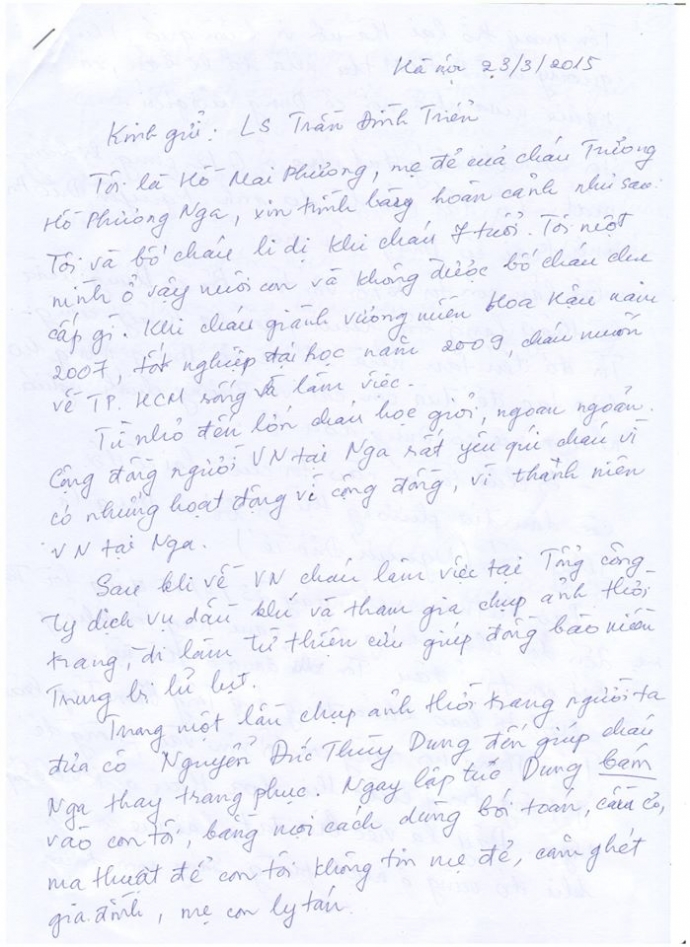 Hà nội 23/3/2015
Kính gửi. LS Trần Đình Triển
Tôi là Hồ Mai Phương, mẹ đẻ của cháu Trương
Hồ Phương Nga, xin trình bày hoàn cảnh như sau:
Tôi và bố cháu li dị khi cháu 7 tuổi. Tôi một
mình ở vậy nuôi con và không được bố cháu chu
cấp gì. Khi cháu giành vương miện Hoa Hậu năm
2007, tốt nghiệp đại học năm 2009, cháu muốn
về TP. HCM sống và làm việc.
Từ nhỏ đến lớn cháu học giỏi, ngoan ngoãn.
Cộng đồng người VN tại Nga rất yêu quí cháu vì
có những hoạt động vì cộng đồng, vì thanh niên
VN tại Nga.
Sau khi về VN cháu làm việc tại Tổng công
ty dịch vụ dầu khí và tham gia chụp ảnh thời
trang, đi làm từ thiện cứu giúp đồng bào miền
Trung bị lũ lụt.
Trong một lần chụp ảnh thời trang người ta
đưa cô Nguyễn Đức Thùy Dung đến giúp cháu
Nga thay trang phục. Ngay lập tức Dung bám
vào con tôi, bằng mọi cách dùng bói toán,
ma thuật để con tôi không tin mẹ đẻ, căm ghét
gia đình, mẹ con ly tán.